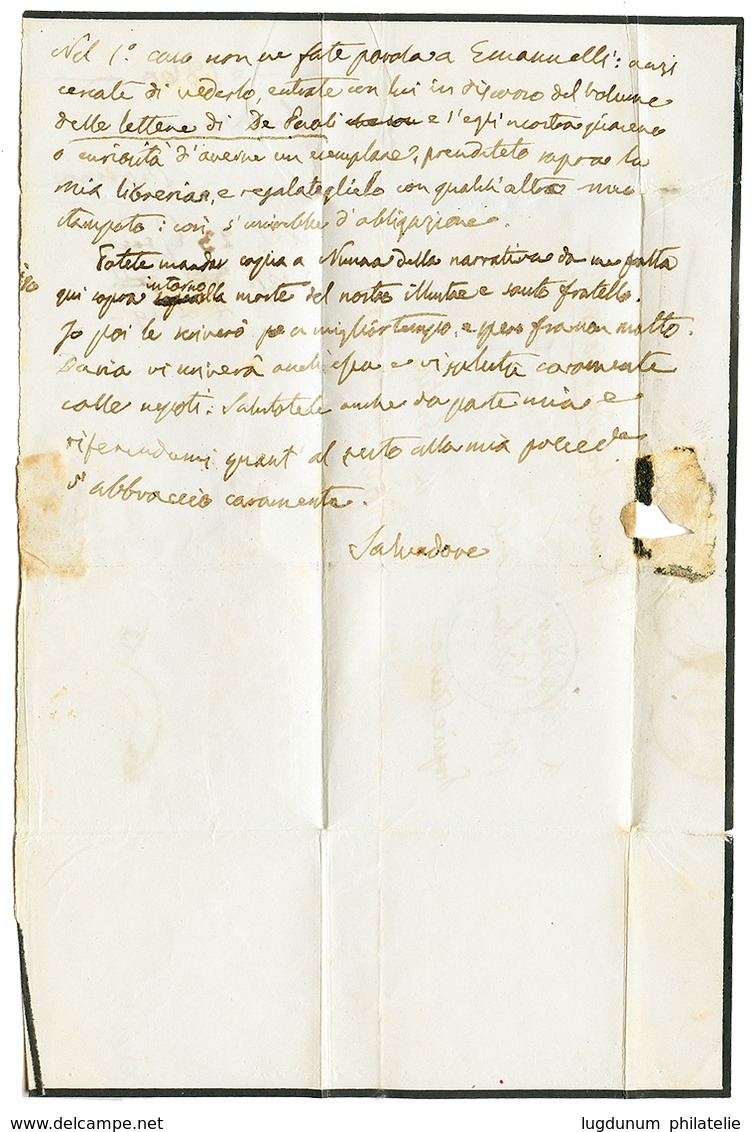 Nel 1.° caso non ne fate parola a Emanuelli: anzi
cercate di vederlo, entrate con lui in discorso del volume
delle lettere di De Paoli e s'egli mostra piacere
o curiosità d'averne un esemplare, prendetelo sopra la
mia libreria, e regalateglielo con qualch'altro mio
stampato: così s'unirebbe d'obligazione.
Potete mandar copia a Nunza della narrativa da me fatta
qui sopra intorno alla morte del nostro illustre e santo fratello.
Io poi le scriverò per a miglior tempo, e spero fra non molto.
Daria vi unirà anch'essa e vi saluta caramente
colle nepoti. Salutatele anche da parte mia e
riferendomi quant' al resto alla mia preced.e
v'abbraccio caramente.
Salvadore
lugdunum philatelie